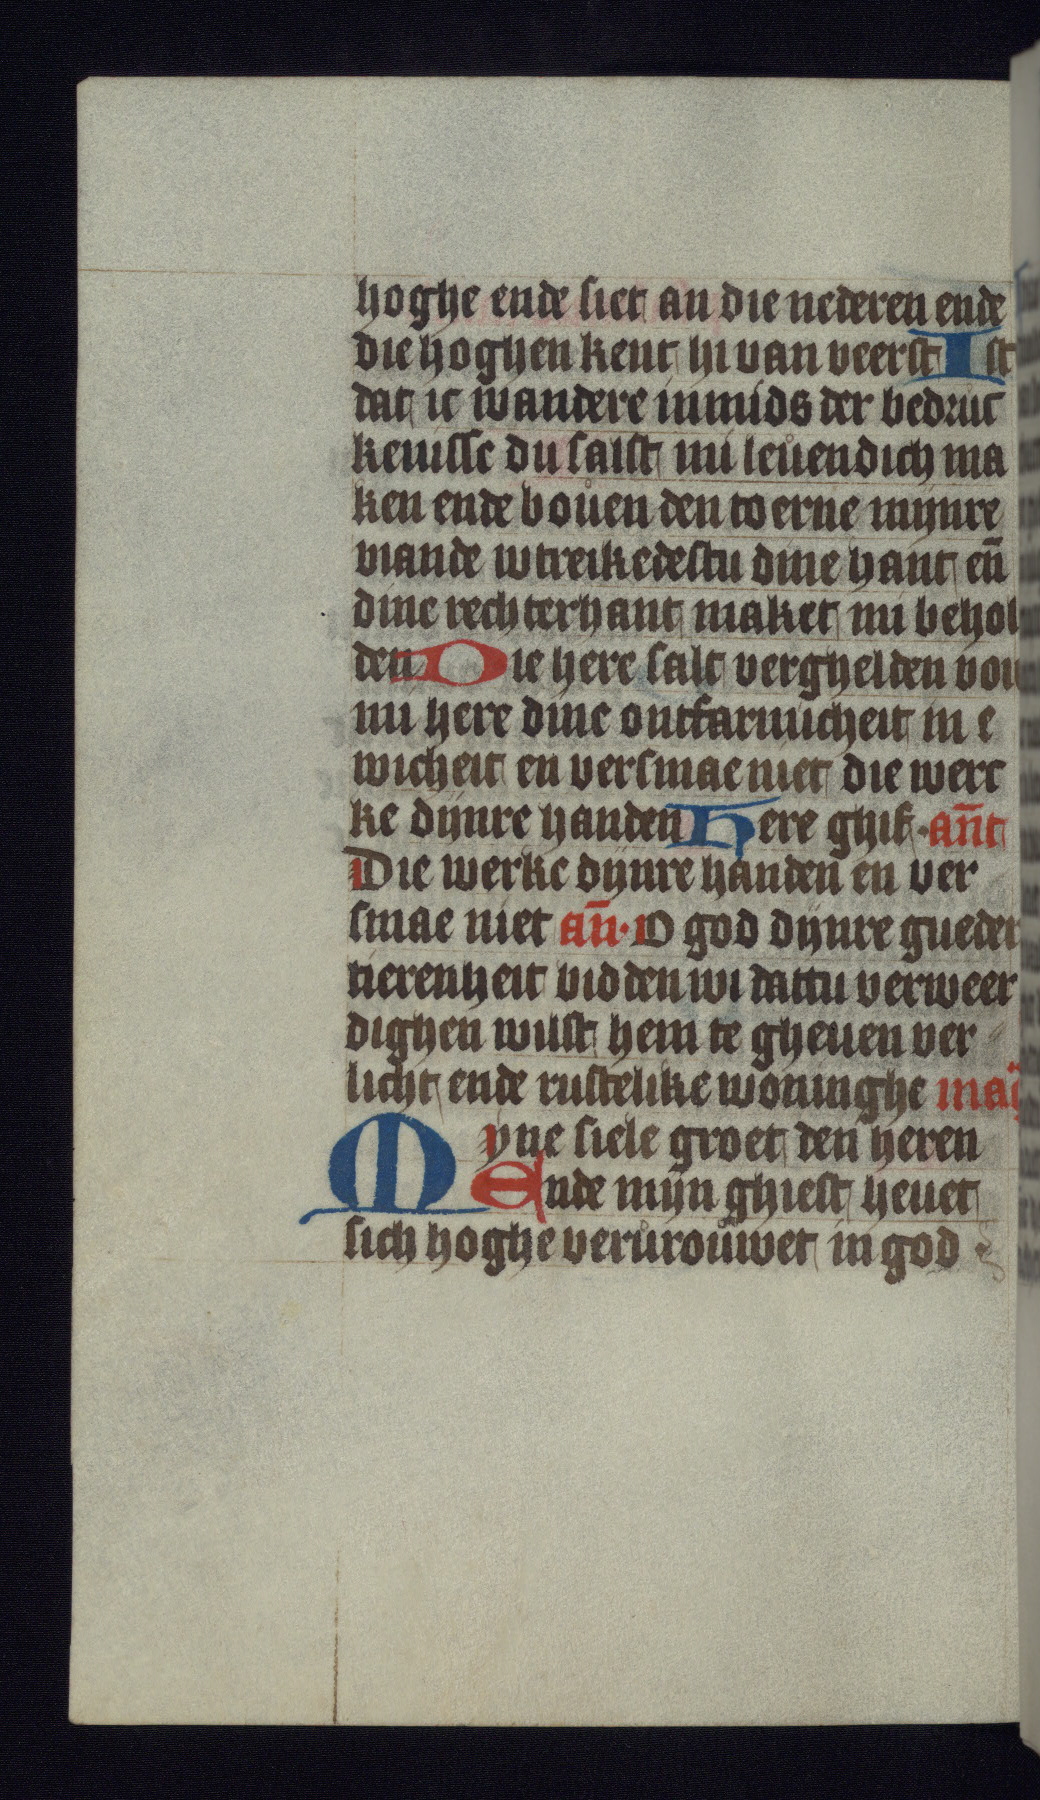 hoghe ende siet an die nederen ende
die hoghen kent hi van veerst Ist
dat ic wandere inmids der bedruc
kenisse du salst mi leuendich ma
ken ende bouen den toerne mijnre
viande wtreikedestu dine hant eñ
dine rechterhant maket mi behol
den Die here salt verghelden vor
mi here dine ontfarmicheit in e
wicheit en versmae niet die werc
ke dijnre handen Here ghif. añt
Die werke dijnre handen en ver
smae niet añ. O god dijnre gueder
tierenheit bidden wi dattu verweer
dighen wilst hem te gheuen ver
licht ende rustelike woninghe maḡ
Myne siele groet den heren
Ende mijn ghiest heuet
sich hoghe verurouwet in god